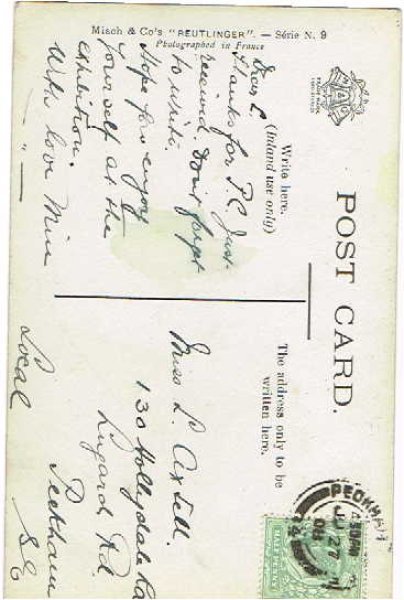 Misch & Co's "REUTLINGER". — Série N. 9
Photographed in France
POST CARD.
Write here.
(Inland use only)
The address only to be
written here.
Dear L.
Thanks for P.C. Just
received. Dont forget
to write.
Hope you enjoy
yourself at the
exhibition.
With love
Miss L. Axtell.
130 Hollydale Rd
Lugard Rd.
Peckham
S.E
Local
PECKHAM
JU 27
08
HALFPENNY